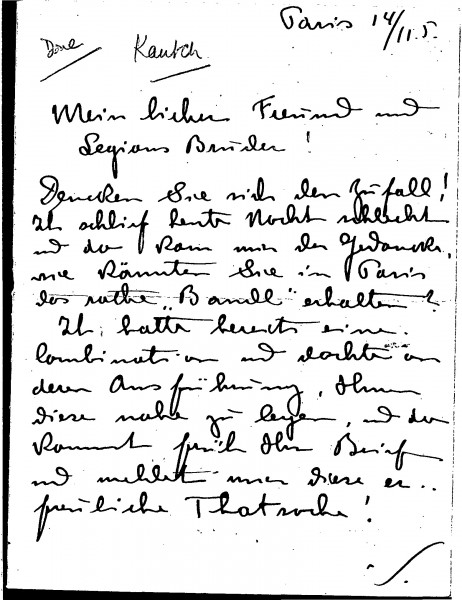 Paris 14/11 5.
Done
Kautsch
Mein lieber Freund und
Legions Bruder!
Dencken Sie sich den Zufall!
Ich schlief heute Nacht schlecht
und da kam mir der Gedancke,
wie könnten Sie in Paris
das rothe "Bandl" erhalten?
Ich hatte bereits eine
Combination und dachte an
deren Ausführung, Ihnen
diese nahe zu legen, und da
kommt früh Ihr Brief
und meldet mir diese er..
freuliche Thatsache!